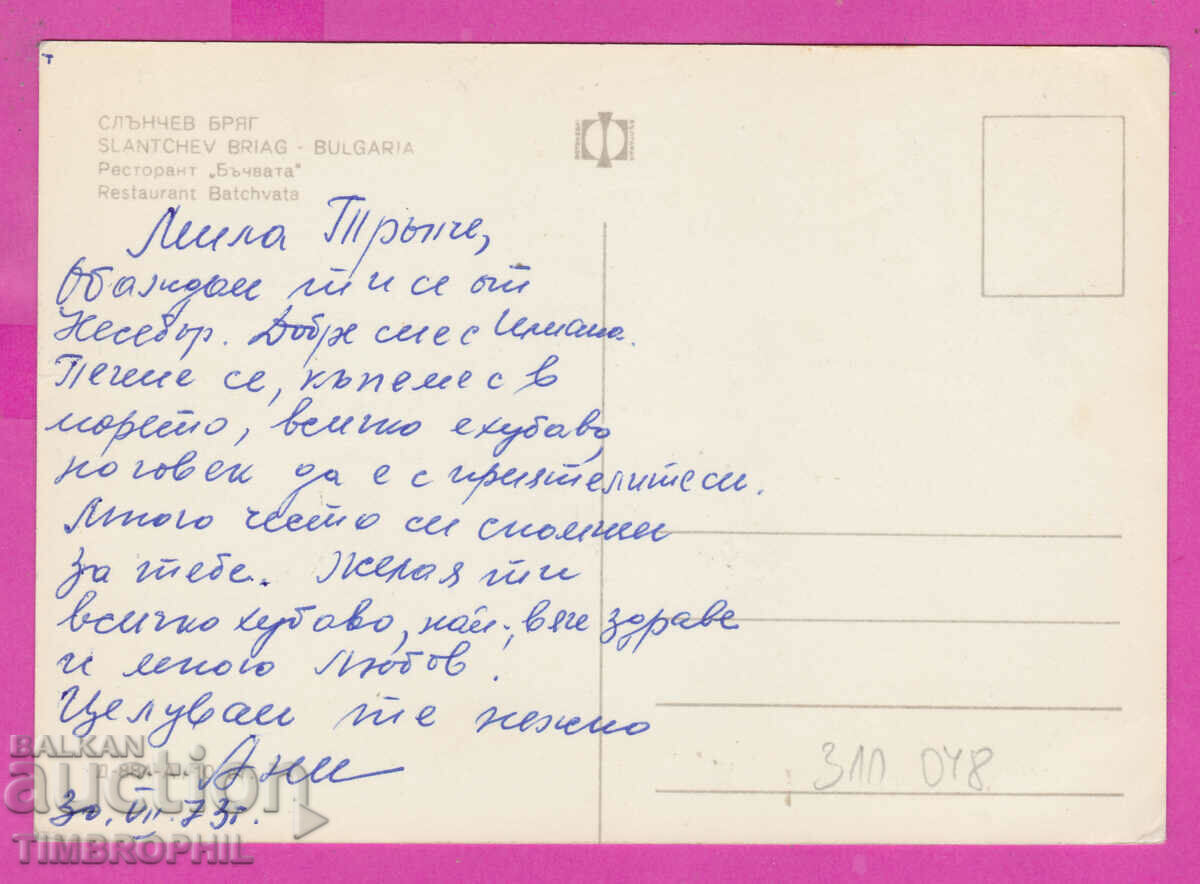 т
СЛЪНЧЕВ БРЯГ
SLANTCHEV BRIAG - BULGARIA
Ресторант „Бъчвата“
Restaurant Batchvata
Мила Трънче,
Обаждам ти се от
Несебър. Добре сме с
Печеме се, къпеме се в
морето, всичко е хубаво,
но човек да е с приятелите си.
Много често си спомням
за тебе. Желая ти
всичко хубаво, най-вече здраве
и много любов.
Целувам те нежно
Ани
30.VII.73г.
311 048
BALKAN
auction
TIMBROPHIL